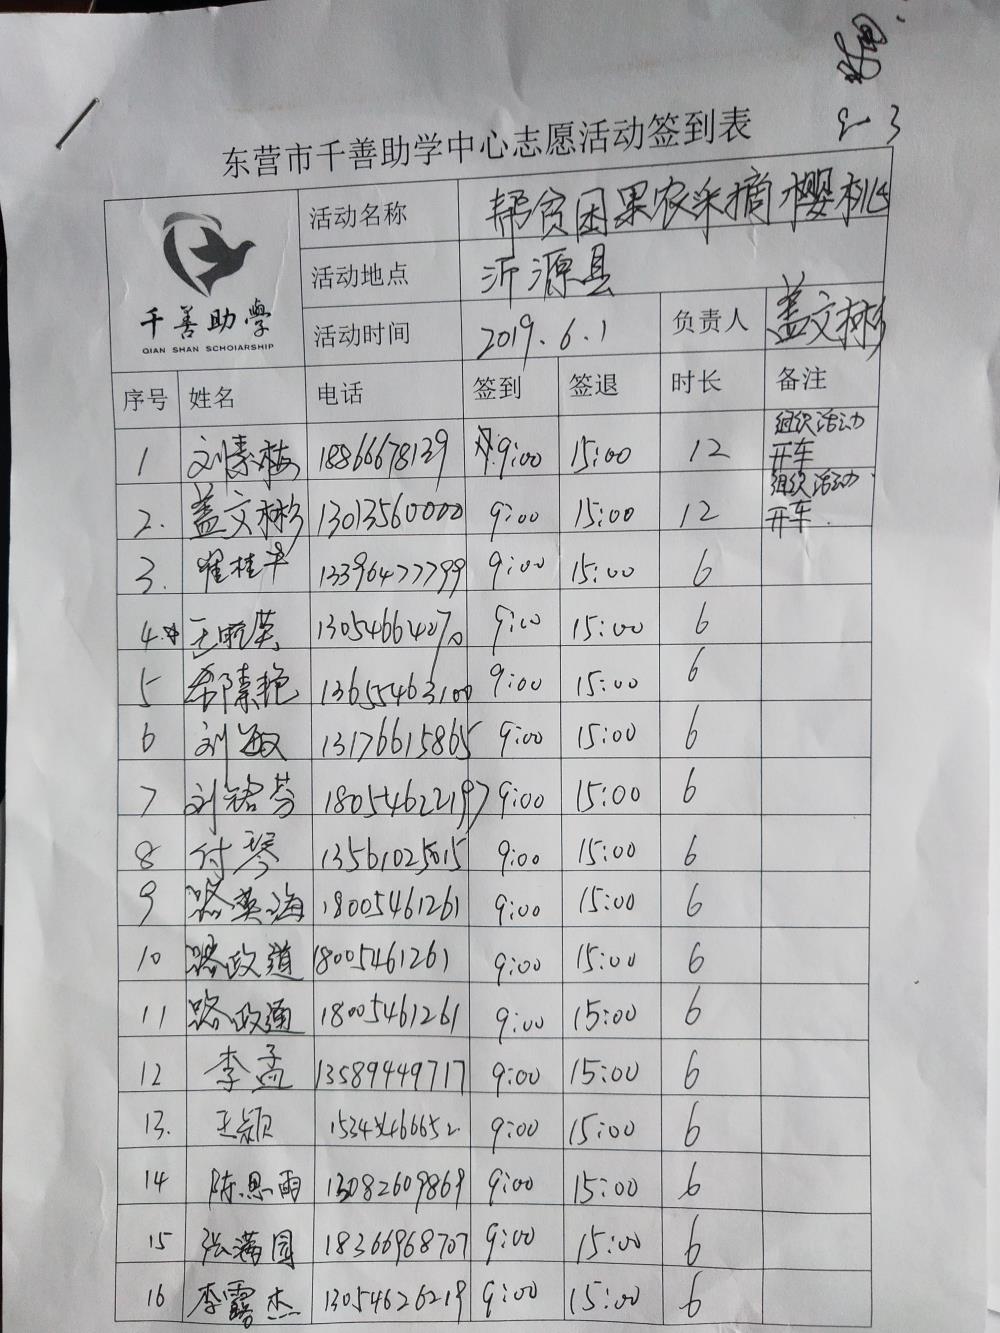 2-3
东营市千善助学中心志愿活动签到表
千善助學
QIAN SHAN SCHOlARSHIP
活动名称 帮贫困果农采摘樱桃
活动地点 沂源县
活动时间 2019.6.1 负责人 盖文彬
序号 姓名 电话 签到 签退 时长 备注
1 刘素梅 18866678139 9:00 15:00 12 组织活动 开车
2. 盖文彬 13013560000 9:00 15:00 12 组织活动. 开车.
3. 翟桂平 13396477799 9:00 15:00 6
4. 王晓英 13054664070 9:00 15:00 6
5 13655463100 9:00 15:00 6
6 刘敏 13176615865 9:00 15:00 6
7 刘铭芬 18054622197 9:00 15:00 6
8 付琴 13561025015 9:00 15:00 6
9 路英海 18005461261 9:00 15:00 6
10 路政道 18005461261 9:00 15:00 6
11 路政通 18005461261 9:00 15:00 6
12 李孟 13589449717 9:00 15:00 6
13. 王颖 9:00 15:00 6
14 陈思雨 13082609869 9:00 15:00 6
15 张满园 18366968707 9:00 15:00 6
16 李露杰 13054626219 9:00 15:00 6